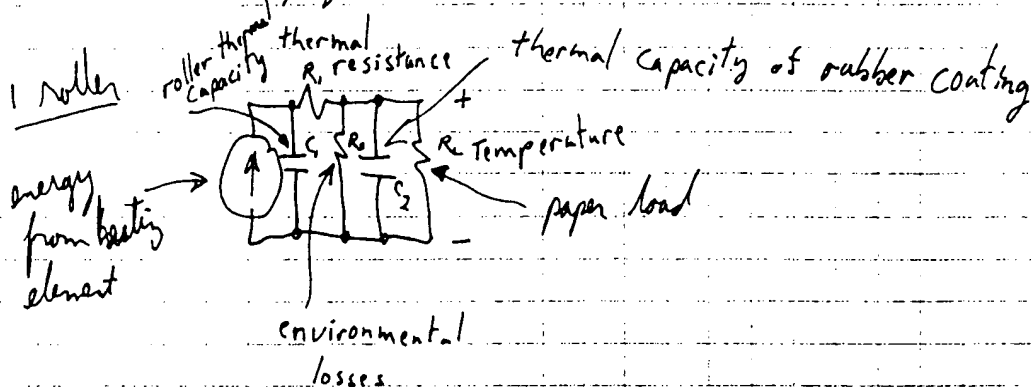 1 roller
roller thermal capacity
thermal resistance
R₁
thermal capacity of rubber coating
+
C₁
C₂
RL Temperature
paper load
-
energy
from heating
element
environmental
losses